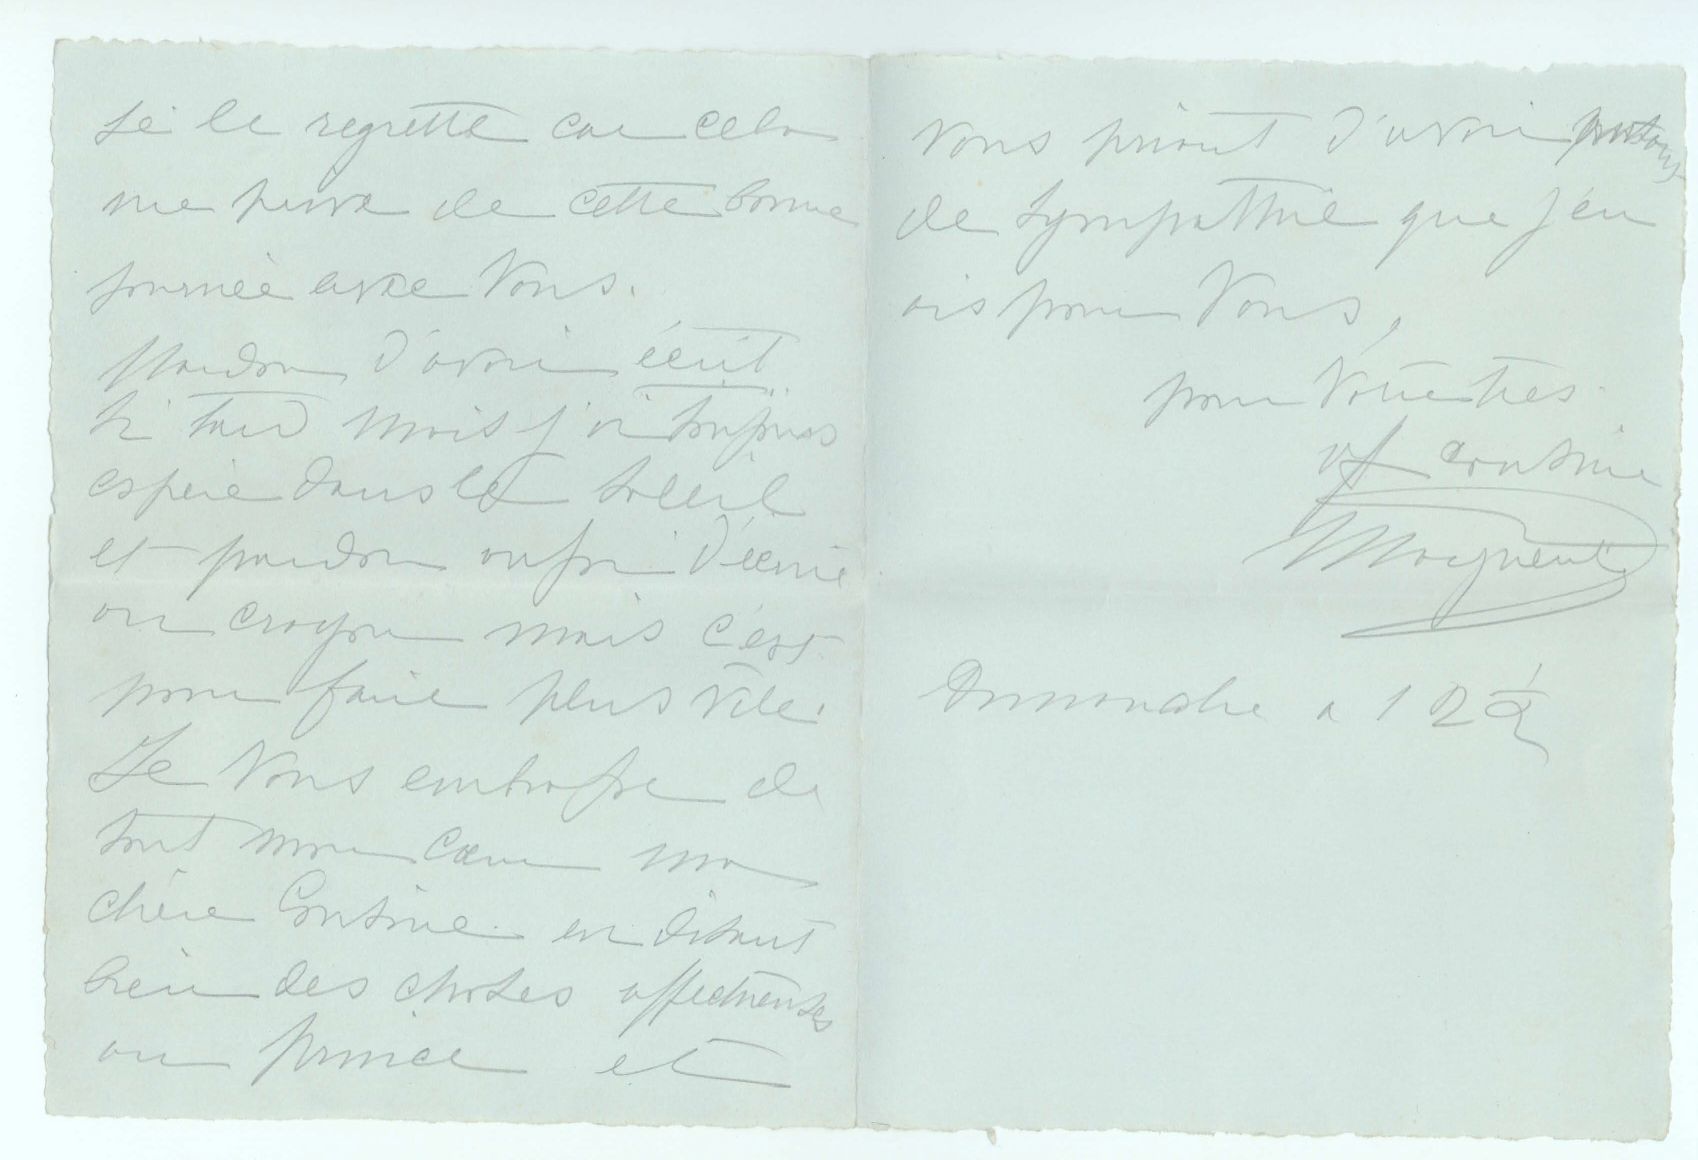 je le regrette car cela
me prive de cette bonne
journée avec Vous.
Pardon d'avoir écrit
si tard mais j'ai toujours
espéré dans le soleil
et pardon aussi d'écrire
au crayon mais c'est
pour faire plus vite.
Je Vous embrasse de
tout mon cœur ma
chère Cousine en disant
bien des choses affectueuses
au prince et
Vous priant d'avoir
de sympathie que j'en
ais pour Vous,
pour Votre très
aff cousine
Dimanche a 12 1/2